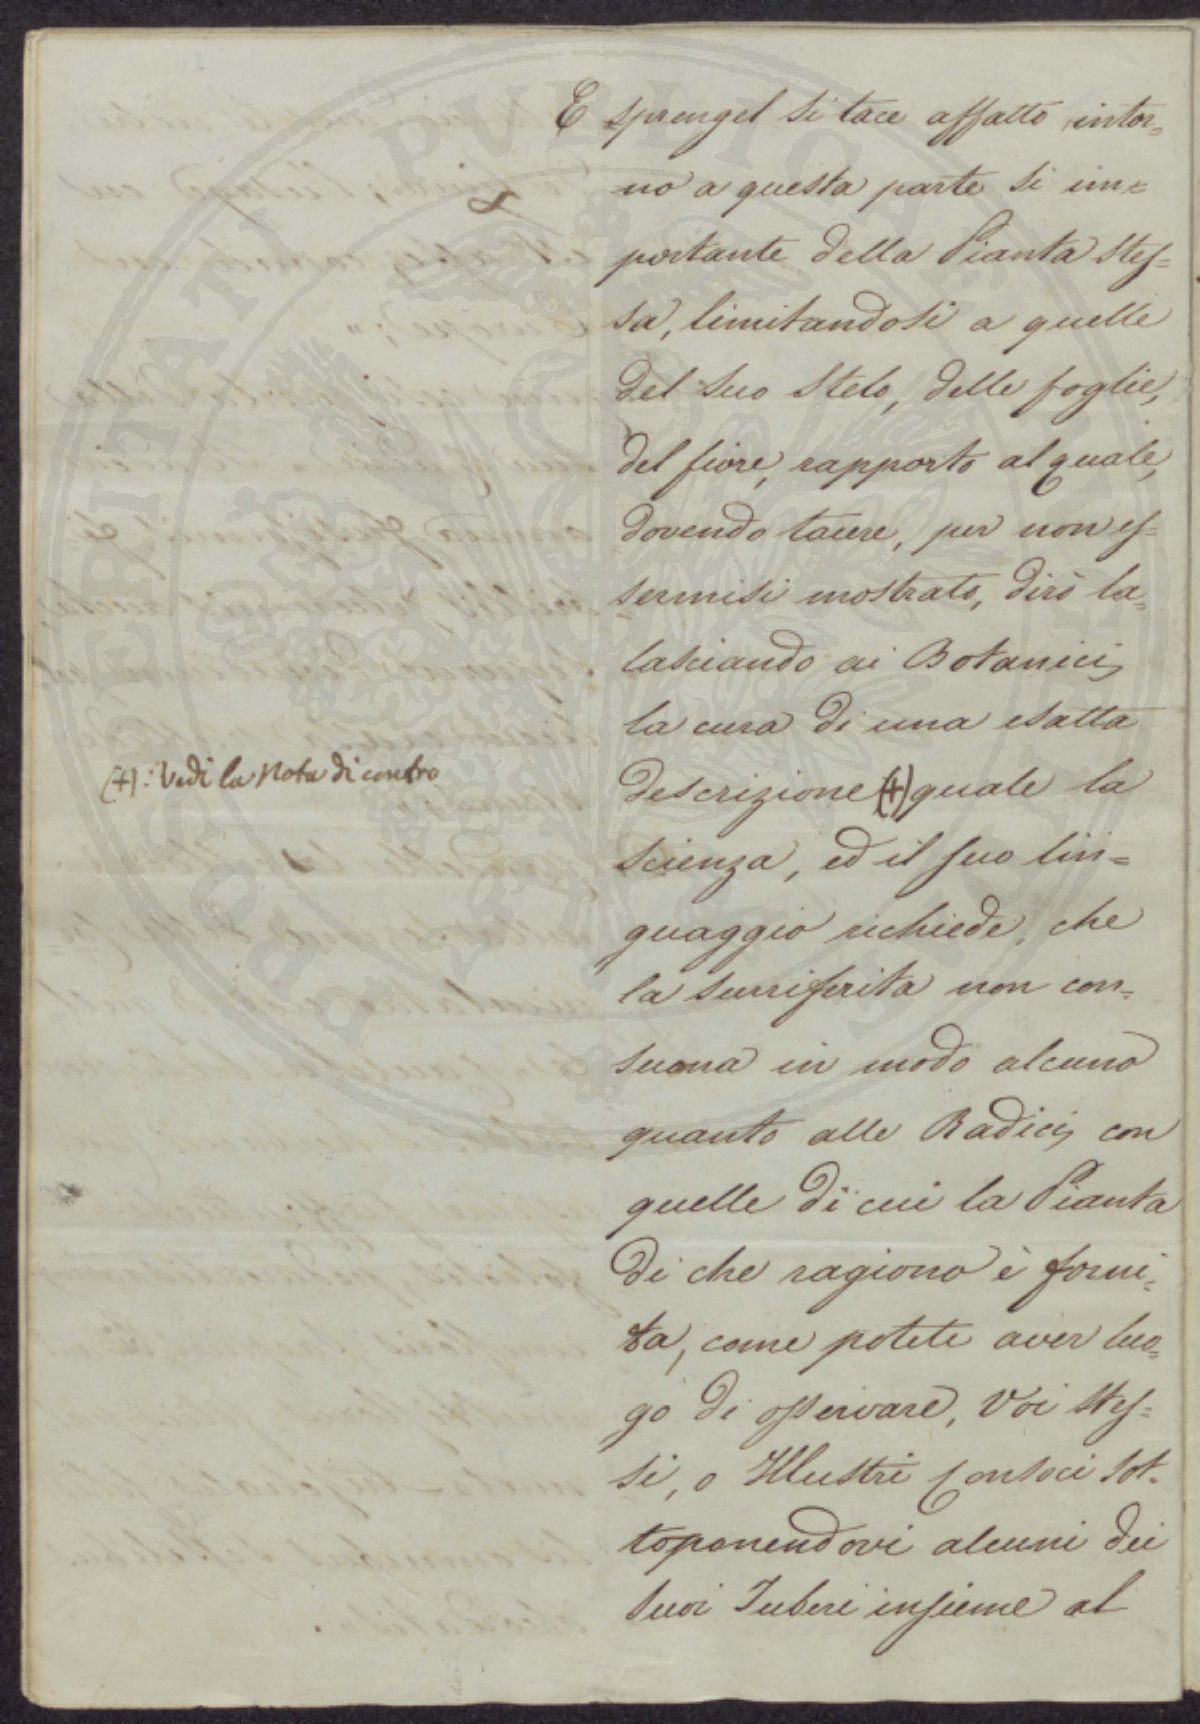 E Sprengel si tace affatto intor=
no a questa parte si im=
portante della Pianta stes=
sa, limitandosi a quelle
del suo stelo, delle foglie,
del fiore, rapporto al quale,
dovendo tacere, per non es=
sermisi mostrato, dirò la=
lasciando ai Botanici,
la cura di una esatta
descrizione (+) quale la
scienza, ed il suo lin=
guaggio richiede, che
la surriferita non con=
suona in modo alcuno
quanto alle Radici, con
quelle di cui la Pianta
di che ragiono è forni=
ta, come potete aver luo=
go di osservare, Voi stes=
si, o Illustri Consoci sot=
toponendovi alcuni dei
suoi Tuberi insieme al
(+): Vedi la Nota di contro
PROSPERITATI PVBLICAE